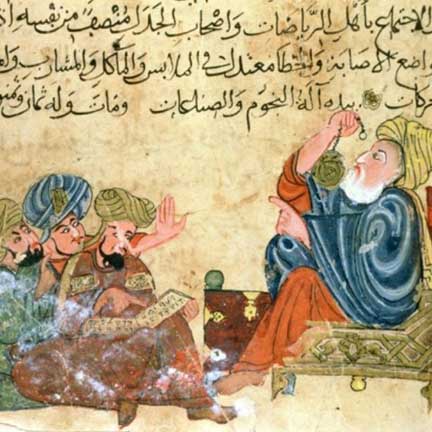 الاجتماع بأهل الرياضات واصحاب الجدل منصف من نفسه
الاصابة والخطا معتدل في الملابس والمآكل والمشارب
بيده آلة النجوم والصناعات ومات وله ثمان